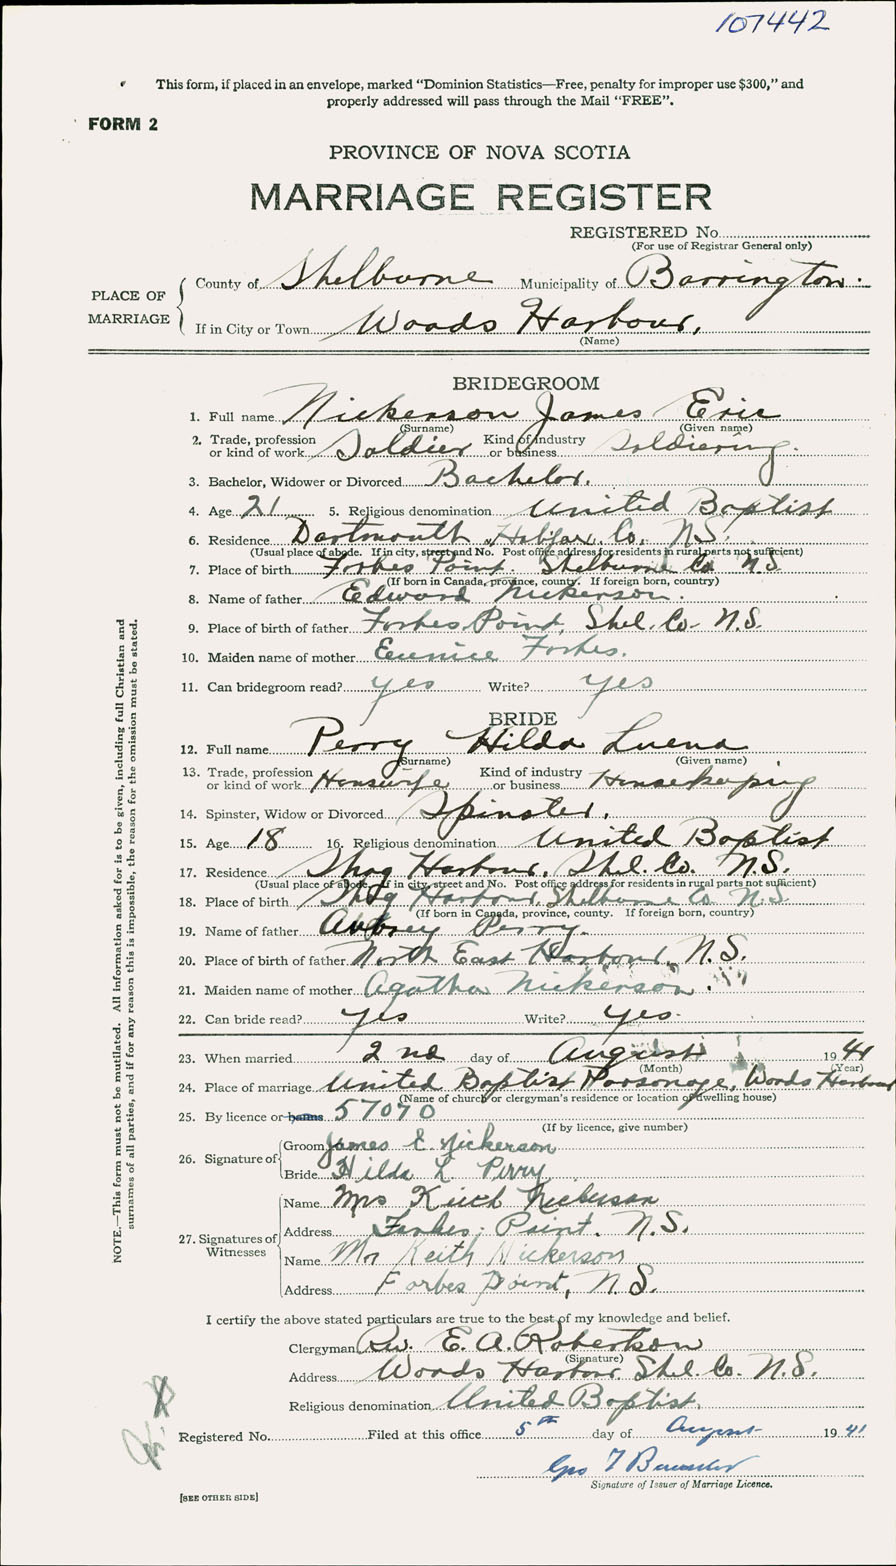 107442
This form, if placed in an envelope, marked "Dominion Statistics—Free, penalty for improper use $300," and
properly addressed will pass through the Mail "FREE".
FORM 2
PROVINCE OF NOVA SCOTIA
MARRIAGE REGISTER
REGISTERED No.
(For use of Registrar General only)
PLACE OF MARRIAGE
County of Shelburne Municipality of Barrington.
If in City or Town Woods Harbour,
(Name)
BRIDEGROOM
1. Full name Nickerson James Eric
(Surname) (Given name)
2. Trade, profession or kind of work Soldier Kind of industry or business Soldiering.
3. Bachelor, Widower or Divorced Bachelor.
4. Age 21 5. Religious denomination United Baptist
6. Residence Dartmouth, Halifax Co. N.S.
(Usual place of abode. If in city, street and No. Post office address for residents in rural parts not sufficient)
7. Place of birth Forbes Point. Shelburne Co N.S.
(If born in Canada, province, county. If foreign born, country)
8. Name of father Edward Nickerson.
9. Place of birth of father Forbes Point, Shel. Co. N.S.
10. Maiden name of mother Eunice Forbes.
11. Can bridegroom read? yes Write? yes
BRIDE
12. Full name Perry Hilda Luena
(Surname) (Given name)
13. Trade, profession or kind of work Housewife Kind of industry or business Housekeeping
14. Spinster, Widow or Divorced Spinster.
15. Age 18 16. Religious denomination United Baptist
17. Residence Shag Harbour, Shel. Co. N.S.
(Usual place of abode. If in city, street and No. Post office address for residents in rural parts not sufficient)
18. Place of birth Shag Harbour, Shelburne Co N.S.
(If born in Canada, province, county. If foreign born, country)
19. Name of father Aubrey Perry.
20. Place of birth of father North East Harbour, N.S.
21. Maiden name of mother Agatha Nickerson.
22. Can bride read? yes Write? yes.
23. When married 2nd day of August 1941
(Month) (Year)
24. Place of marriage United Baptist Parsonage, Woods Harbour
(Name of church or clergyman's residence or location of dwelling house)
25. By licence or banns 57070
(If by licence, give number)
26. Signature of
Groom James E. Nickerson
Bride Hilda L Perry
27. Signatures of Witnesses
Name Mrs Keith Nickerson
Address Forbes Point. N.S.
Name Mr Keith Nickerson
Address Forbes Point, N.S.
I certify the above stated particulars are true to the best of my knowledge and belief.
Clergyman Rev. E. A. Robertson
(Signature)
Address Woods Harbour Shel. Co. N.S.
Religious denomination United Baptist.
Registered No. Filed at this office 5th day of August 1941
Geo T
Signature of Issuer of Marriage Licence.
[SEE OTHER SIDE]
NOTE.—This form must not be mutilated. All information asked for is to be given, including full Christian and
surnames of all parties, and if for any reason this is impossible, the reason for the omission must be stated.